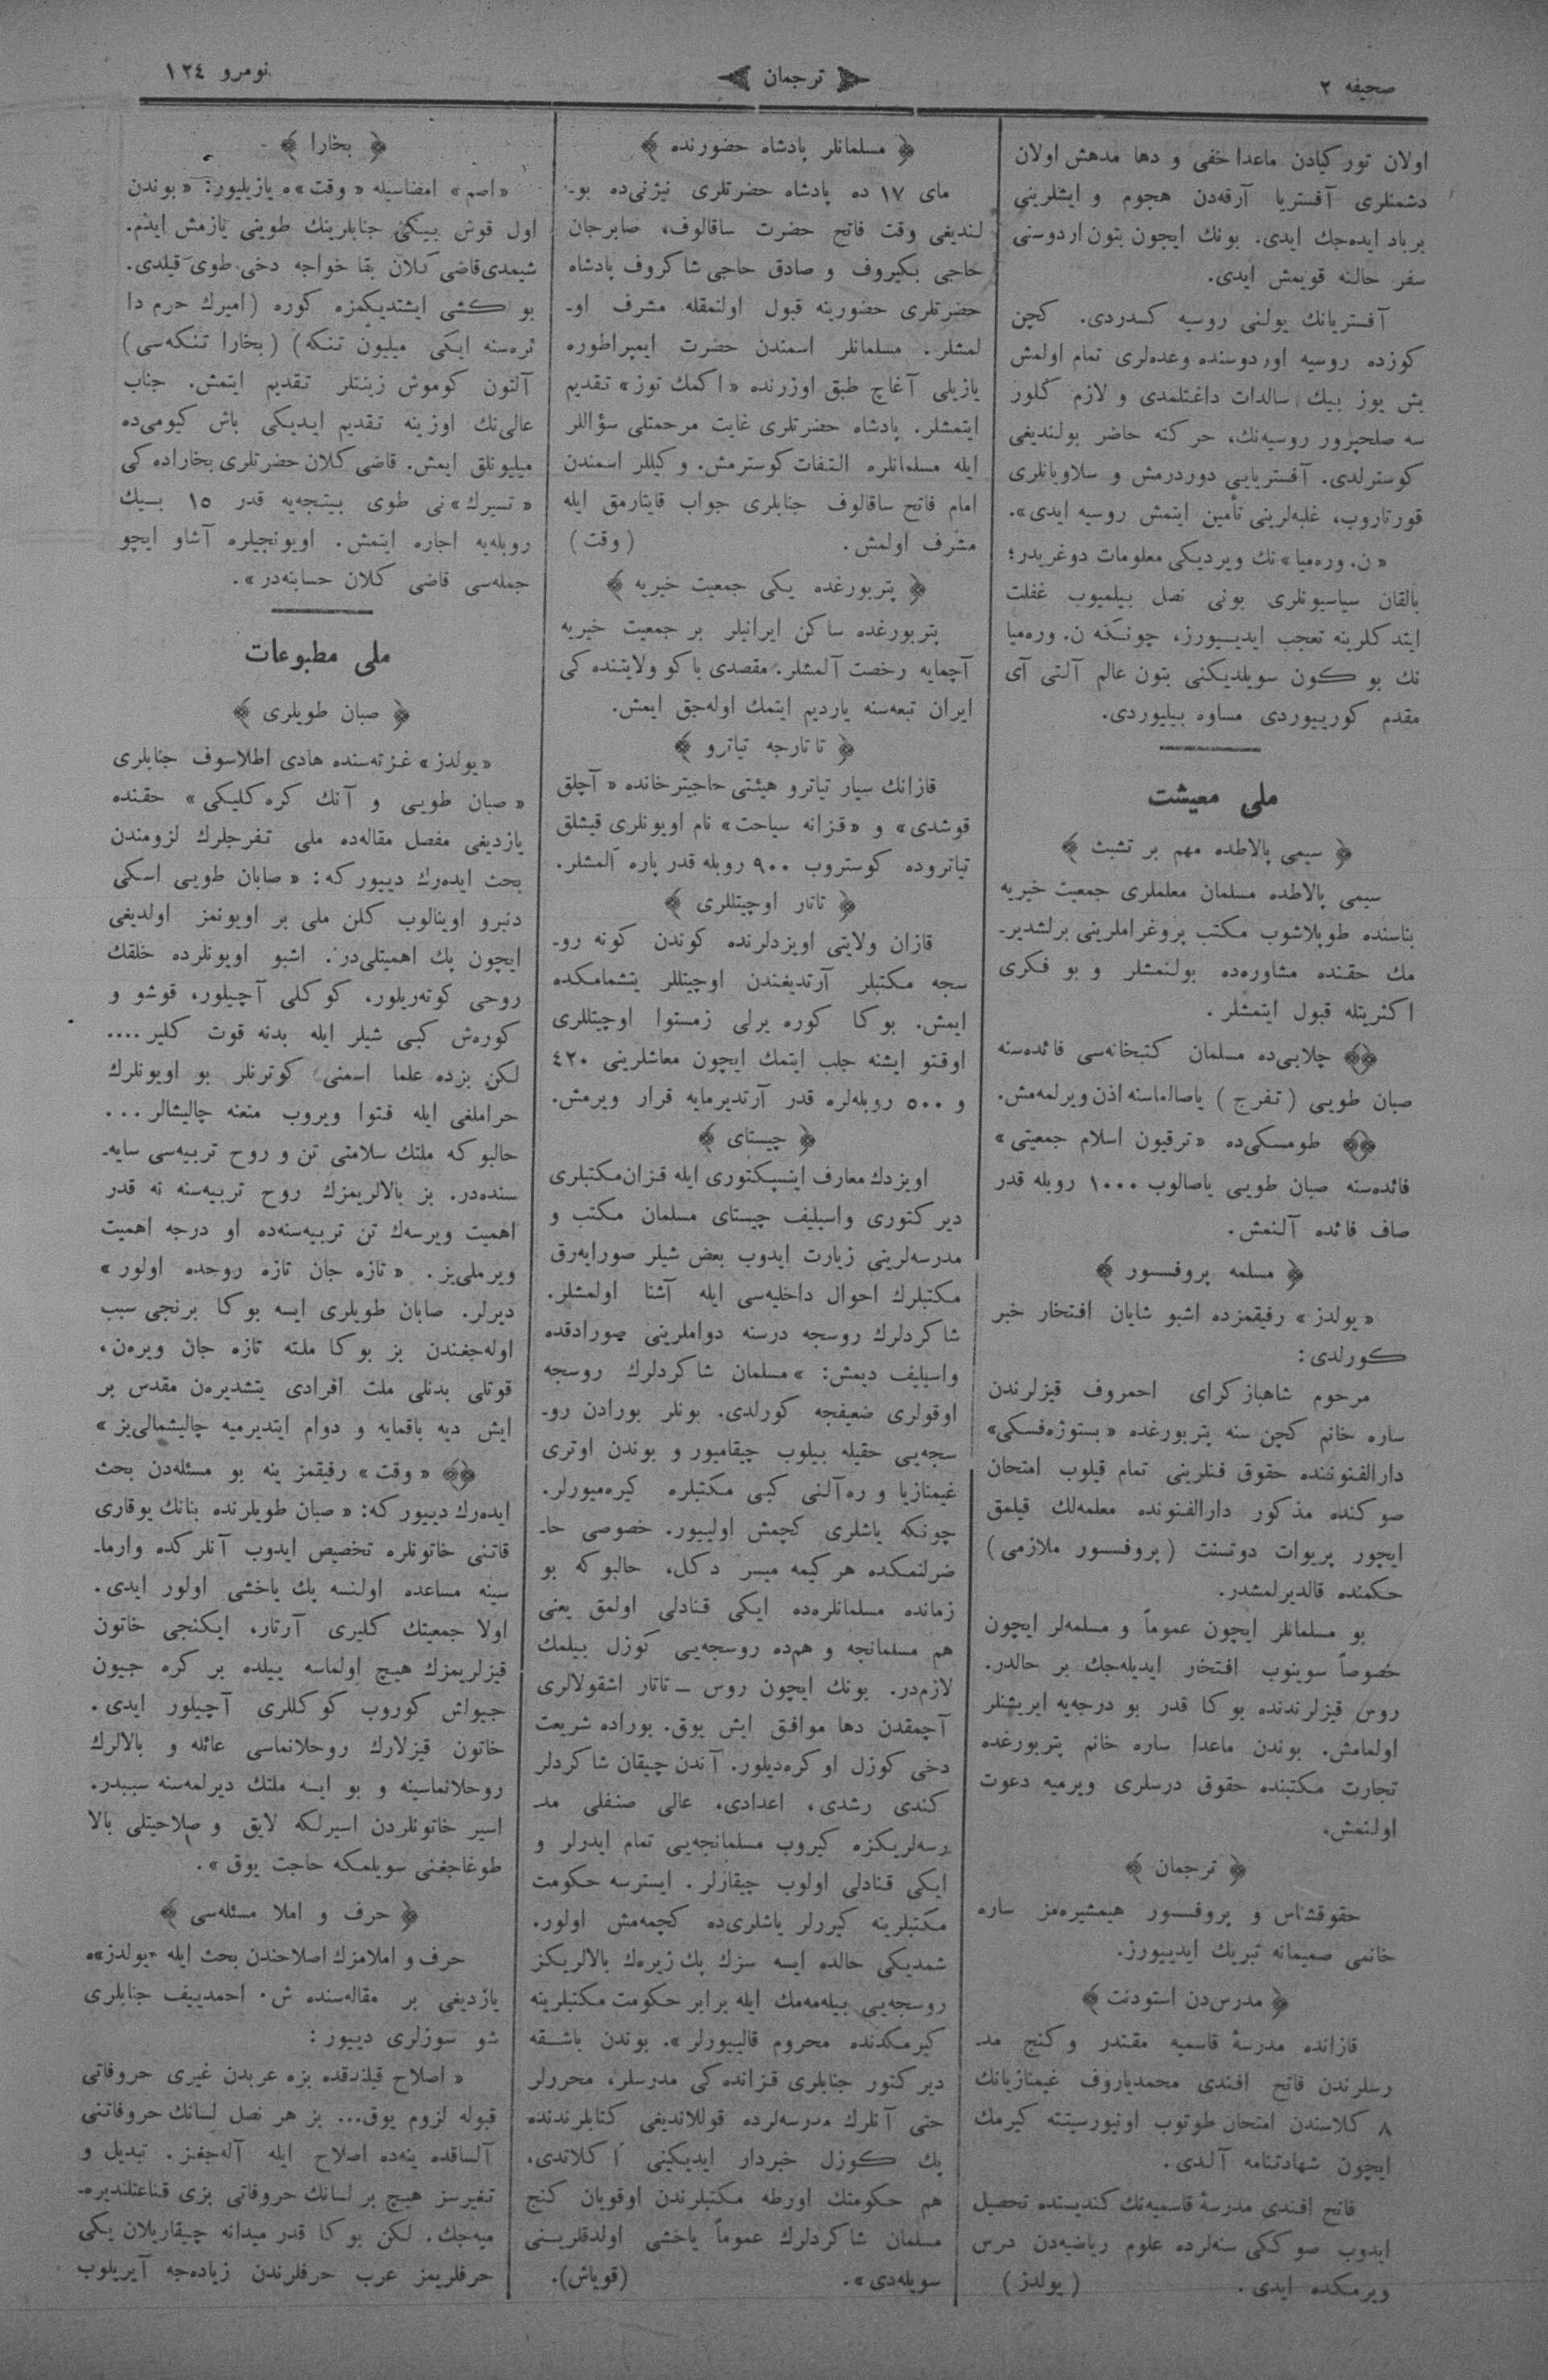 صحیفه ٢
ترجمان
نومرو ١٢٤
اولان تورکیادن ماعدا خفی و دها مدهش اولان
دشمنلری آفستریا آرقه‌دن هجوم و ایشلرینی
برباد ایده‌جك ایدی. بونك ایچون بتون اردوسنی
سفر حالنه قویمش ایدی.
آفستریانك یولنی روسیه کسدردی. کچن
کوزده روسیه اوردوسنده وعده‌لری تمام اولمش
بش یوز بیك سالدات داغتلمدی و لازم کلور
سه صلحپرور روسیه‌نك، حرکته حاضر بولندیغی
کوسترلدی. آفستریایی دوردرمش و سلاویانلری
قورتاروب، غلبه‌لرینی تأمین ایتمش روسیه ایدی».
«ن. وره‌میا» نك ویردیکی معلومات دوغریدر؛
بالقان سیاسیونلری بونی نصل بیلمیوب غفلت
ایتدکلرینه تعجب ایدییورز، چونکه ن. وره‌میا
نك بو کون سویلدیکنی بتون عالم آلتی آی
مقدم کورییوردی مساوه بیلیوردی.
ملی معیشت
﴿ سیمی پالاطده مهم بر تشبث ﴾
سیمی پالاطده مسلمان معلملری جمعیت خیریه
بناسنده طوپلاشوب مکتب پروغراملرینی برلشدیر-
مك حقنده مشاوره‌ده بولنمشلر و بو فکری
اکثریتله قبول ایتمشلر.
﴿﴾ چلابی‌ده مسلمان کتبخانه‌سی فائده‌سنه
صبان طویی (تفرج) یاصالماسنه اذن ویرلمه‌مش.
﴿﴾ طومسکی‌ده «ترقیون اسلام جمعیتی»
فائده‌سنه صبان طویی یاصالوب ١٠٠٠ روبله قدر
صاف فائده آلنمش.
﴿ مسلمه پروفسور ﴾
«یولدز» رفیقمزده اشبو شایان افتخار خبر
کورلدی:
مرحوم شاهبازکرای احمروف قیزلرندن
ساره خانم کچن سنه پتربورغده «بستوژه‌فسکی»
دارالفنوننده حقوق فنلرینی تمام قیلوب امتحان
صوکنده مذکور دارالفنونده معلمه‌لك قیلمق
ایچور پریوات دوتسنت (پروفسور ملازمی)
حکمنده قالدیرلمشدر.
بو مسلمانلر ایچون عموماً و مسلمه‌لر ایچون
خصوصاً سوینوب افتخار ایدیله‌جك بر حالدر.
روس قیزلرندنده بوکا قدر بو درجه‌یه ایریشنلر
اولمامش. بوندن ماعدا ساره خانم پتربورغده
تجارت مکتبنده حقوق درسلری ویرمیه دعوت
اولنمش.
﴿ ترجمان ﴾
حقوقشناس و پروفسور همشیره‌مز ساره
خانمی صمیمانه تبریك ایدییورز.
﴿ مدرس‌دن استودنت ﴾
قازانده مدرسهٔ قاسمیه مقتدر و کنج مد-
رسلرندن فاتح افندی محمدیاروف غیمنازیانك
٨ کلاسندن امتحان طوتوب اونیورسیتته کیرمك
ایچون شهادتنامه آلدی.
فاتح افندی مدرسهٔ قاسمیه‌نك کندیسنده تحصیل
ایدوب صوککی سنه‌لرده علوم ریاضیه‌دن درس
ویرمکده ایدی. (یولدز)
﴿ مسلمانلر پادشاه حضورنده ﴾
مای ١٧ ده پادشاه حضرتلری نیژنی‌ده بو-
لندیغی وقت فاتح حضرت ساقالوف، صابرجان
حاجی بکیروف و صادق حاجی شاکروف پادشاه
حضرتلری حضورینه قبول اولنمقله مشرف او-
لمشلر. مسلمانلر اسمندن حضرت ایمپراطوره
یازیلی آغاچ طبق اوزرنده «اکمك توز» تقدیم
ایتمشلر. پادشاه حضرتلری غایت مرحمتلی سؤاللر
ایله مسلمانلره التفات کوسترمش. و کیللر اسمندن
امام فاتح ساقالوف جنابلری جواب قایتارمق ایله
مشرف اولمش. (وقت)
﴿ پتربورغده یکی جمعیت خیریه ﴾
پتربورغده ساکن ایرانیلر بر جمعیت خیریه
آچمایه رخصت آلمشلر. مقصدی باکو ولایتنده کی
ایران تبعه‌سنه یاردیم ایتمك اوله‌جق ایمش.
﴿ تاتارجه تیاترو ﴾
قازانك سیار تیاترو هیئتی حاجیترخانده «آچلق
قوشدی» و «قزانه سیاحت» نام اویونلری قیشلق
تیاتروده کوستروب ٩٠٠ روبله قدر پاره آلمشلر.
﴿ تاتار اوچیتللری ﴾
قازان ولایتی اویزدلرنده کوندن کونه رو-
سجه مکتبلر آرتدیغندن اوچیتللر یتشمامکده
ایمش. بوکا کوره یرلی زمستوا اوچیتللری
اوقتو ایشنه جلب ایتمك ایچون معاشلرینی ٤٢٠
و ٥٠٠ روبله‌لره قدر آرتدیرمایه قرار ویرمش.
﴿ چیستای ﴾
اویزدك معارف اینسپکتوری ایله قزان‌مکتبلری
دیرکتوری واسیلیف چیستای مسلمان مکتب و
مدرسه‌لرینی زیارت ایدوب بعض شیلر صورایه‌رق
مکتبلرك احوال داخلیه‌سی ایله آشنا اولمشلر.
شاکردلرك روسجه درسنه دواملرینی صورادقده
واسیلیف دیمش: «مسلمان شاکردلرك روسجه
اوقولری ضعیفجه کورلدی. بونلر بورادن رو-
سجه‌یی حقیله بیلوب چیقامیور و بوندن اوتری
غیمنازیا و ره‌آلنی کبی مکتبلره کیره‌میورلر.
چونکه یاشلری کچمش اولییور. خصوصی حا-
ضرلنمکده هرکیمه میسر دکل، حالبوکه بو
زمانده مسلمانلره‌ده ایکی قنادلی اولمق یعنی
هم مسلمانجه و هم‌ده روسجه‌یی کوزل بیلمك
لازم‌در. بونك ایچون روس - تاتار اشقولالری
آچمقدن دها موافق ایش یوق. بوراده شریعت
دخی کوزل اوکره‌دیلور. آندن چیقان شاکردلر
کندی رشدی، اعدادی، عالی صنفلی مد-
رسه‌لریکزه کیروب مسلمانجه‌یی تمام ایدرلر و
ایکی قنادلی اولوب چیقازلر. ایسترسه حکومت
مکتبلرینه کیررلر یاشلری‌ده کچمه‌مش اولور.
شمدیکی حالده ایسه سزك پك زیره‌ك بالالریکز
روسجه‌یی بیله‌مه‌مك ایله برابر حکومت مکتبلرینه
کیرمکدنده محروم قالییورلر». بوندن باشقه
دیرکتور جنابلری قزانده‌کی مدرسلر، محررلر
حتی آنلرك مدرسه‌لرده قوللاندیغی کتابلرندنده
پك کوزل خبردار ایدیکینی آکلاتدی.
هم حکومتك اورطه مکتبلرندن اوقویان کنج
مسلمان شاکردلرك عموماً یاخشی اولدقلرینی
سویله‌دی». (قویاش).
﴿ بخارا ﴾
«اصم» امضاسیله «وقت»ه یازیلیور: «بوندن
اول قوش بیکی جنابلرینك طوینی یازمش ایدم.
شیمدی‌قاضی کلان بقا خواجه دخی طوی قیلدی.
بو کشی ایشتدیکمزه کوره (امیرك حرم دا
ئره‌سنه ایکی میلیون تنکه) (بخارا تنکه‌سی)
آلتون کوموش زینتلر تقدیم ایتمش. جناب
عالی‌نك اوزینه تقدیم ایدیکی باش کیومی‌ده
میلیونلق ایمش. قاضی کلان حضرتلری بخاراده کی
«تسبرك» نی طوی بیتجه‌یه قدر ١٥ بیك
روبله‌یه اجاره ایتمش. اویونجیلره آشاو ایچو
جمله‌سی قاضی کلان حسابنه‌در».
ملی مطبوعات
﴿ صبان طویلری ﴾
«یولدز» غزته‌سنده هادی اطلاسوف جنابلری
«صبان طویی و آنك کره‌کلیکی» حقنده
یازدیغی مفصل مقاله‌ده ملی تفرجلرك لزومندن
بحث ایده‌رك دییورکه: «صابان طویی اسکی
دنبرو اوینالوب کلن ملی بر اویونمز اولدیغی
ایچون پك اهمیتلی‌در. اشبو اویونلرده خلقك
روحی کوته‌ریلور، کوکلی آچیلور، قوشو و
کوره‌ش کبی شیلر ایله بدنه قوت کلیر....
لکن بزده علما اسمنی کوترنلر بو اویونلرك
حراملغی ایله فتوا ویروب منعنه چالیشالر...
حالبوکه ملتك سلامتی تن و روح تربیه‌سی سایه-
سنده‌در. بز بالالریمزك روح تربیه‌سنه نه قدر
اهمیت ویرسه‌ك تن تربیه‌سنه‌ده او درجه اهمیت
ویرملی‌یز. «تازه جان تازه روحده اولور»
دیرلر. صابان طویلری ایسه بوکا برنجی سبب
اوله‌جغندن بز بوکا ملته تازه جان ویره‌ن،
قوتلی بدنلی ملت افرادی یتشدیره‌ن مقدس بر
ایش دیه باقمایه و دوام ایتدیرمیه چالیشمالی‌یز»
﴿﴾ «وقت» رفیقمز ینه بو مسئله‌دن بحث
ایده‌رك دییورکه: «صبان طویلرنده بنانك یوقاری
قاتنی خاتونلره تخصیص ایدوب آنلرکده وارما-
سینه مساعده اولنسه پك یاخشی اولور ایدی.
اولا جمعیتك کلیری آرتار، ایکنجی خاتون
قیزلریمزك هیچ اولماسه ییلده بر کره جیون
جیولش کوروب کوکللری آچیلور ایدی.
خاتون قیزلارك روحلانماسی عائله و بالالرك
روحلانماسینه و بو ایسه ملتك دیرلمه‌سنه سببدر.
اسیر خاتونلردن اسیرلکه لایق و صلاحیتلی بالا
طوغاجغنی سویلمکه حاجت یوق».
﴿ حرف و املا مسئله‌سی ﴾
حرف و املامزك اصلاحندن بحث ایله «یولدز»ه
یازدیغی بر مقاله‌سنده ش. احمدییف جنابلری
شو سوزلری دییور:
«اصلاح قیلندقده بزه عربدن غیری حروفاتی
قبوله لزوم یوق... بز هر نصل لسانك حروفاتنی
آلساقده ینه‌ده اصلاح ایله آله‌جغز. تبدیل و
تغیرسز هیچ بر لسانك حروفاتی بزی قناعتلندیره-
میه‌جك. لکن بوکا قدر میدانه چیقاریلان یکی
حرفلریمز عرب حرفلرندن زیاده‌جه آیریلوب